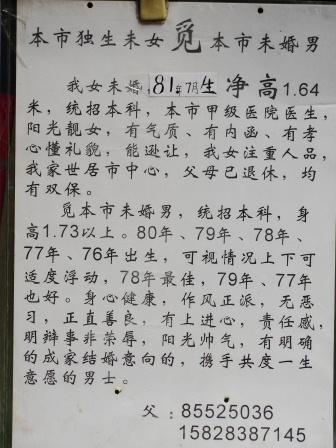 本市独生未女觅本市未婚男
我女未婚,81年7月生净高1.64
米,统招本科,本市甲级医院医生,
阳光靓女,有气质、有内函、有孝
心懂礼貌,能逊让,我女注重人品,
我家世居市中心,父母已退休,均
有双保。
觅本市未婚男,统招本科,身
高1.73以上。80年、79年、78年、
77年、76年出生,可视情况上下可
适度浮动,78年最佳,79年、77年
也好。身心健康,作风正派,无恶
习,正直善良,有上进心,责任感,
明辩事非荣辱,阳光帅气,有明确
的成家结婚意向的,携手共度一生
意愿的男士。
父:85525036
15828387145